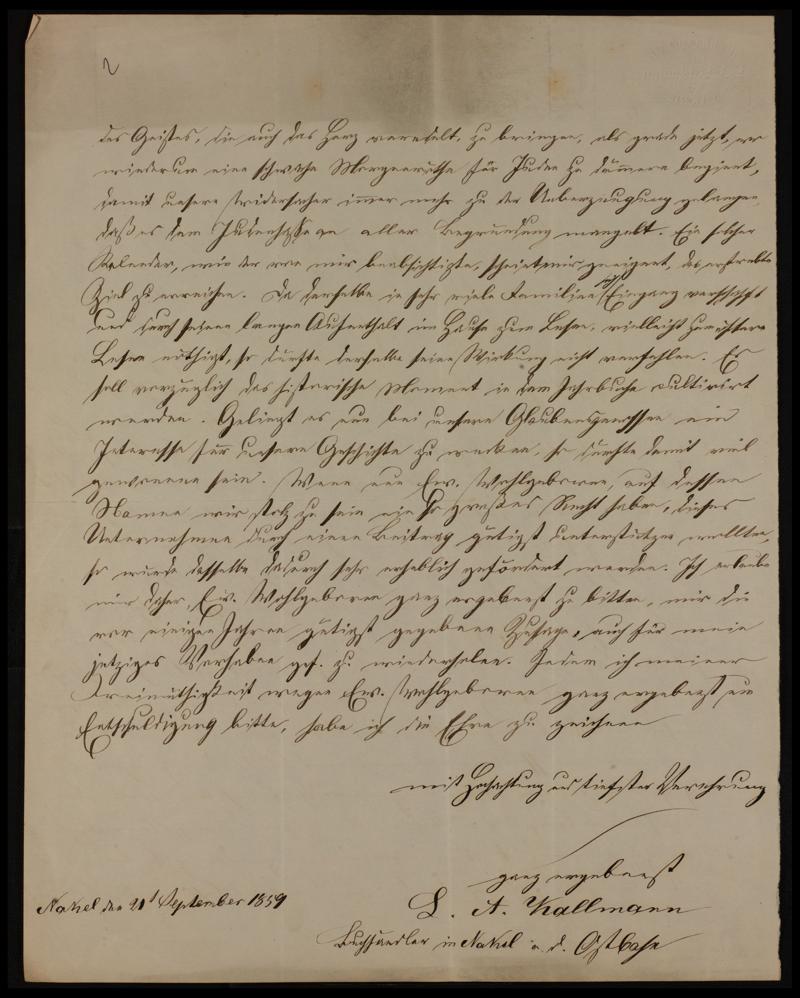 2
des Geistes, die auch das Herz veredelt, zu bringen, als grade jetzt, wo
wiederum eine schwache Morgenröthe für Juden zu dämmern beginnt,
damit unsere Widersacher immer mehr zu der Ueberzeugung gelangen,
daß es dem Judenhasse an aller Begründung mangelt. Ein solcher
Kalender, wie der von mir beabsichtigte, scheint mir geeignet, das erstrebte
Ziel zu erreichen. Da derselbe in sehr viele Familien sich Eingang verschafft
und durch seinen langen Aufenthalt im Hause zum Lesen, vielleicht zum öftern
Lesen nöthigt, so dürfte derselbe seine Wirkung nicht verfehlen. Es
soll vorzüglich das historische Moment in dem Jahrbuche cultivirt
werden. Gelingt es nun bei unsern Glaubensgenossen ein
Interesse für unsere Geschichte zu wecken, so dürfte damit viel
gewonnen sein. Wenn nun Ew. Wohlgeboren, auf dessen
Namen wir stolz zu sein ein so großes Recht haben, dieses
Unternehmen durch einen Beitrag gütigst unterstützen wollten,
so würde dasselbe dadurch sehr erheblich gefördert werden. Ich erlaube
mir daher, Ew. Wohlgeboren ganz ergebenst zu bitten, mir die
vor einigen Jahren gütigst gegebene Zusage, auch für mein
jetziges Vorhaben gef. zu wiederholen. Indem ich meiner
Freimüthigkeit wegen Ew. Wohlgeboren ganz ergebenst um
Entschuldigung bitte, habe ich die Ehre zu zeichnen
mit Hochachtung und tiefster Verehrung
ganz ergebenst
Nakel den 21t September 1859
L. A. Kallmann
Buchhändler in Nakel a. d. Ostbahn